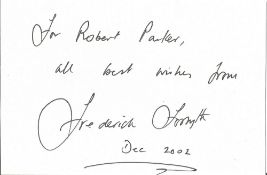 For Robert Parker,
all best wishes from
Frederick Forsyth
Dec 2002